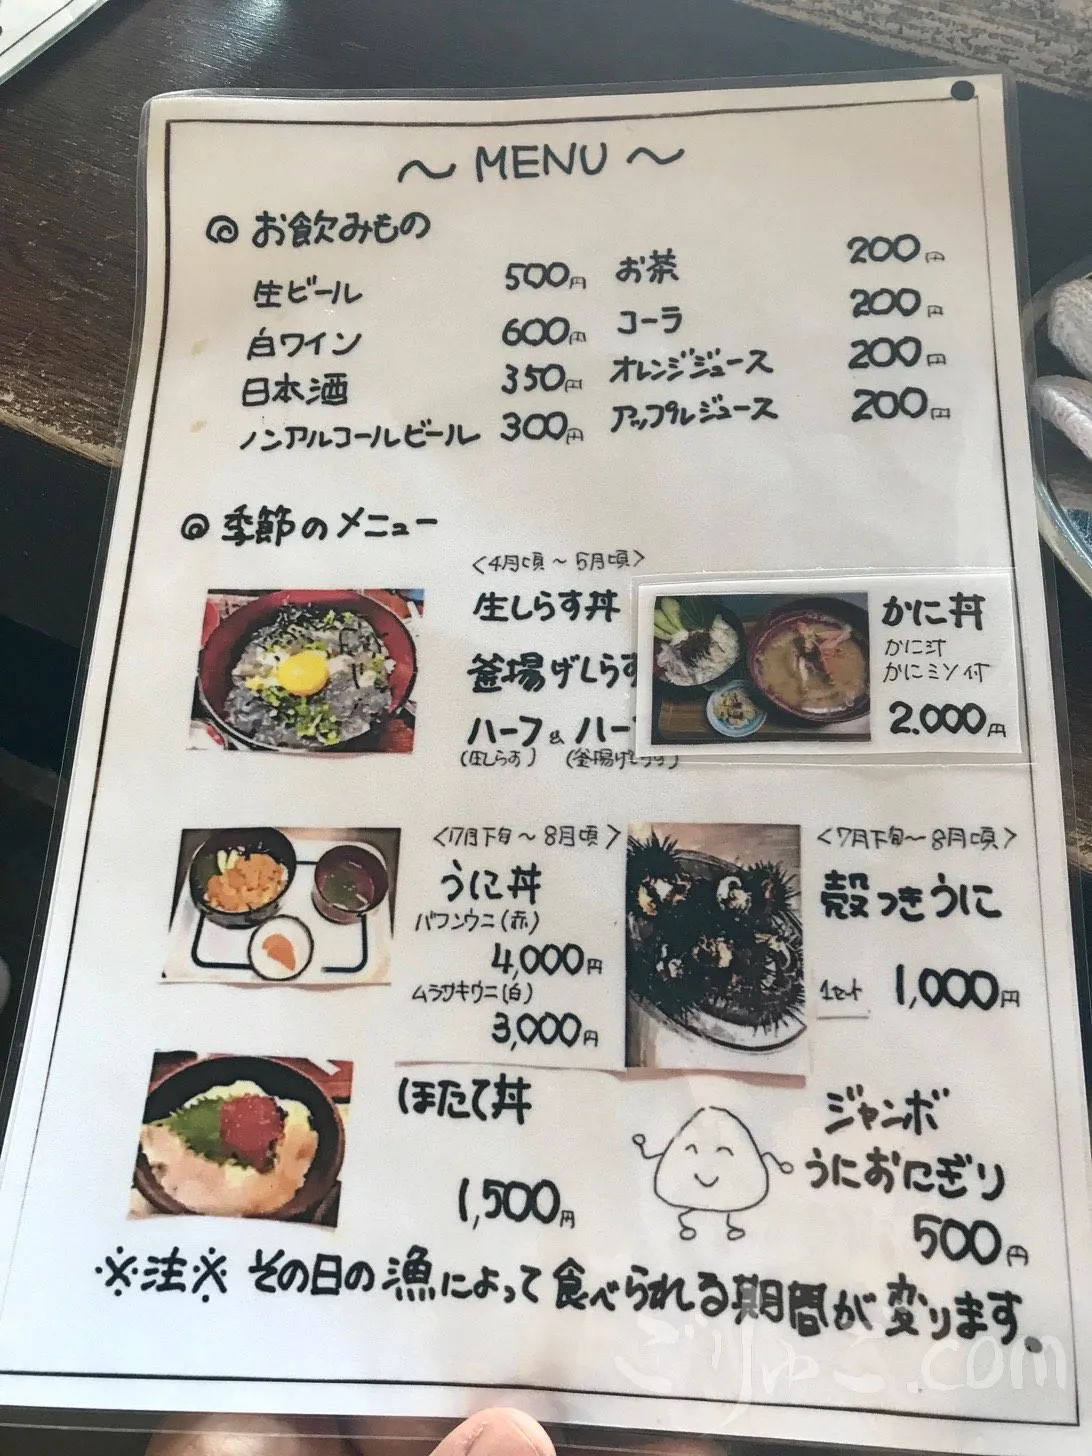 ～ MENU ～
お飲みもの
生ビール 500円
白ワイン 600円
日本酒 350円
ノンアルコールビール 300円
お茶 200円
コーラ 200円
オレンジジュース 200円
アップルジュース 200円
季節のメニュー
<4月頃～5月頃>
生しらす丼
釜揚げしらす
ハーフ & ハー
(生しらす) (釜揚げしらす)
かに丼
かに汁
かにミソ付
2.000円
<7月下旬～8月頃>
うに丼
バフンウニ(赤)
4,000円
ムラサキウニ(白)
3,000円
<7月下旬～8月頃>
殻つきうに
1セット 1,000円
ほたて丼
1,500円
ジャンボ
うにおにぎり
500円
※注※ その日の漁によって食べられる期間が変ります。
ごりゅご.com